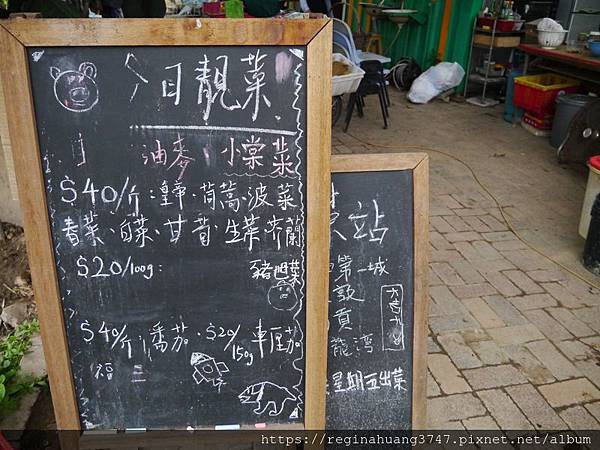 今日靚菜
油麥、小棠菜
$40/斤:茼蒿·菠菜
春菜、白菜、甘筍·生菜·芥蘭
$20/100g:
豬肥菜
$40/斤:番茄·$20/150g車厘茄
福
站
第一城
敦
龍灣
星期五出菜
https://reginahuang3747.pixnet.net/album